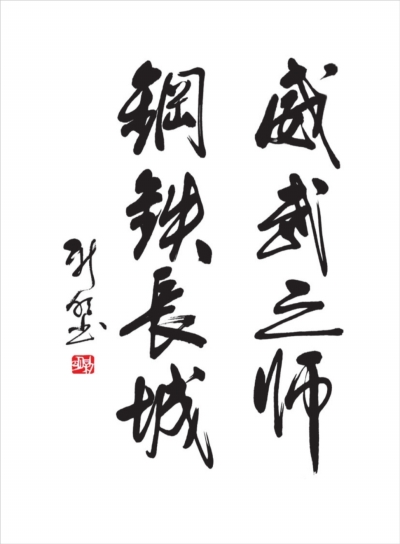 威武之师
鋼铁長城